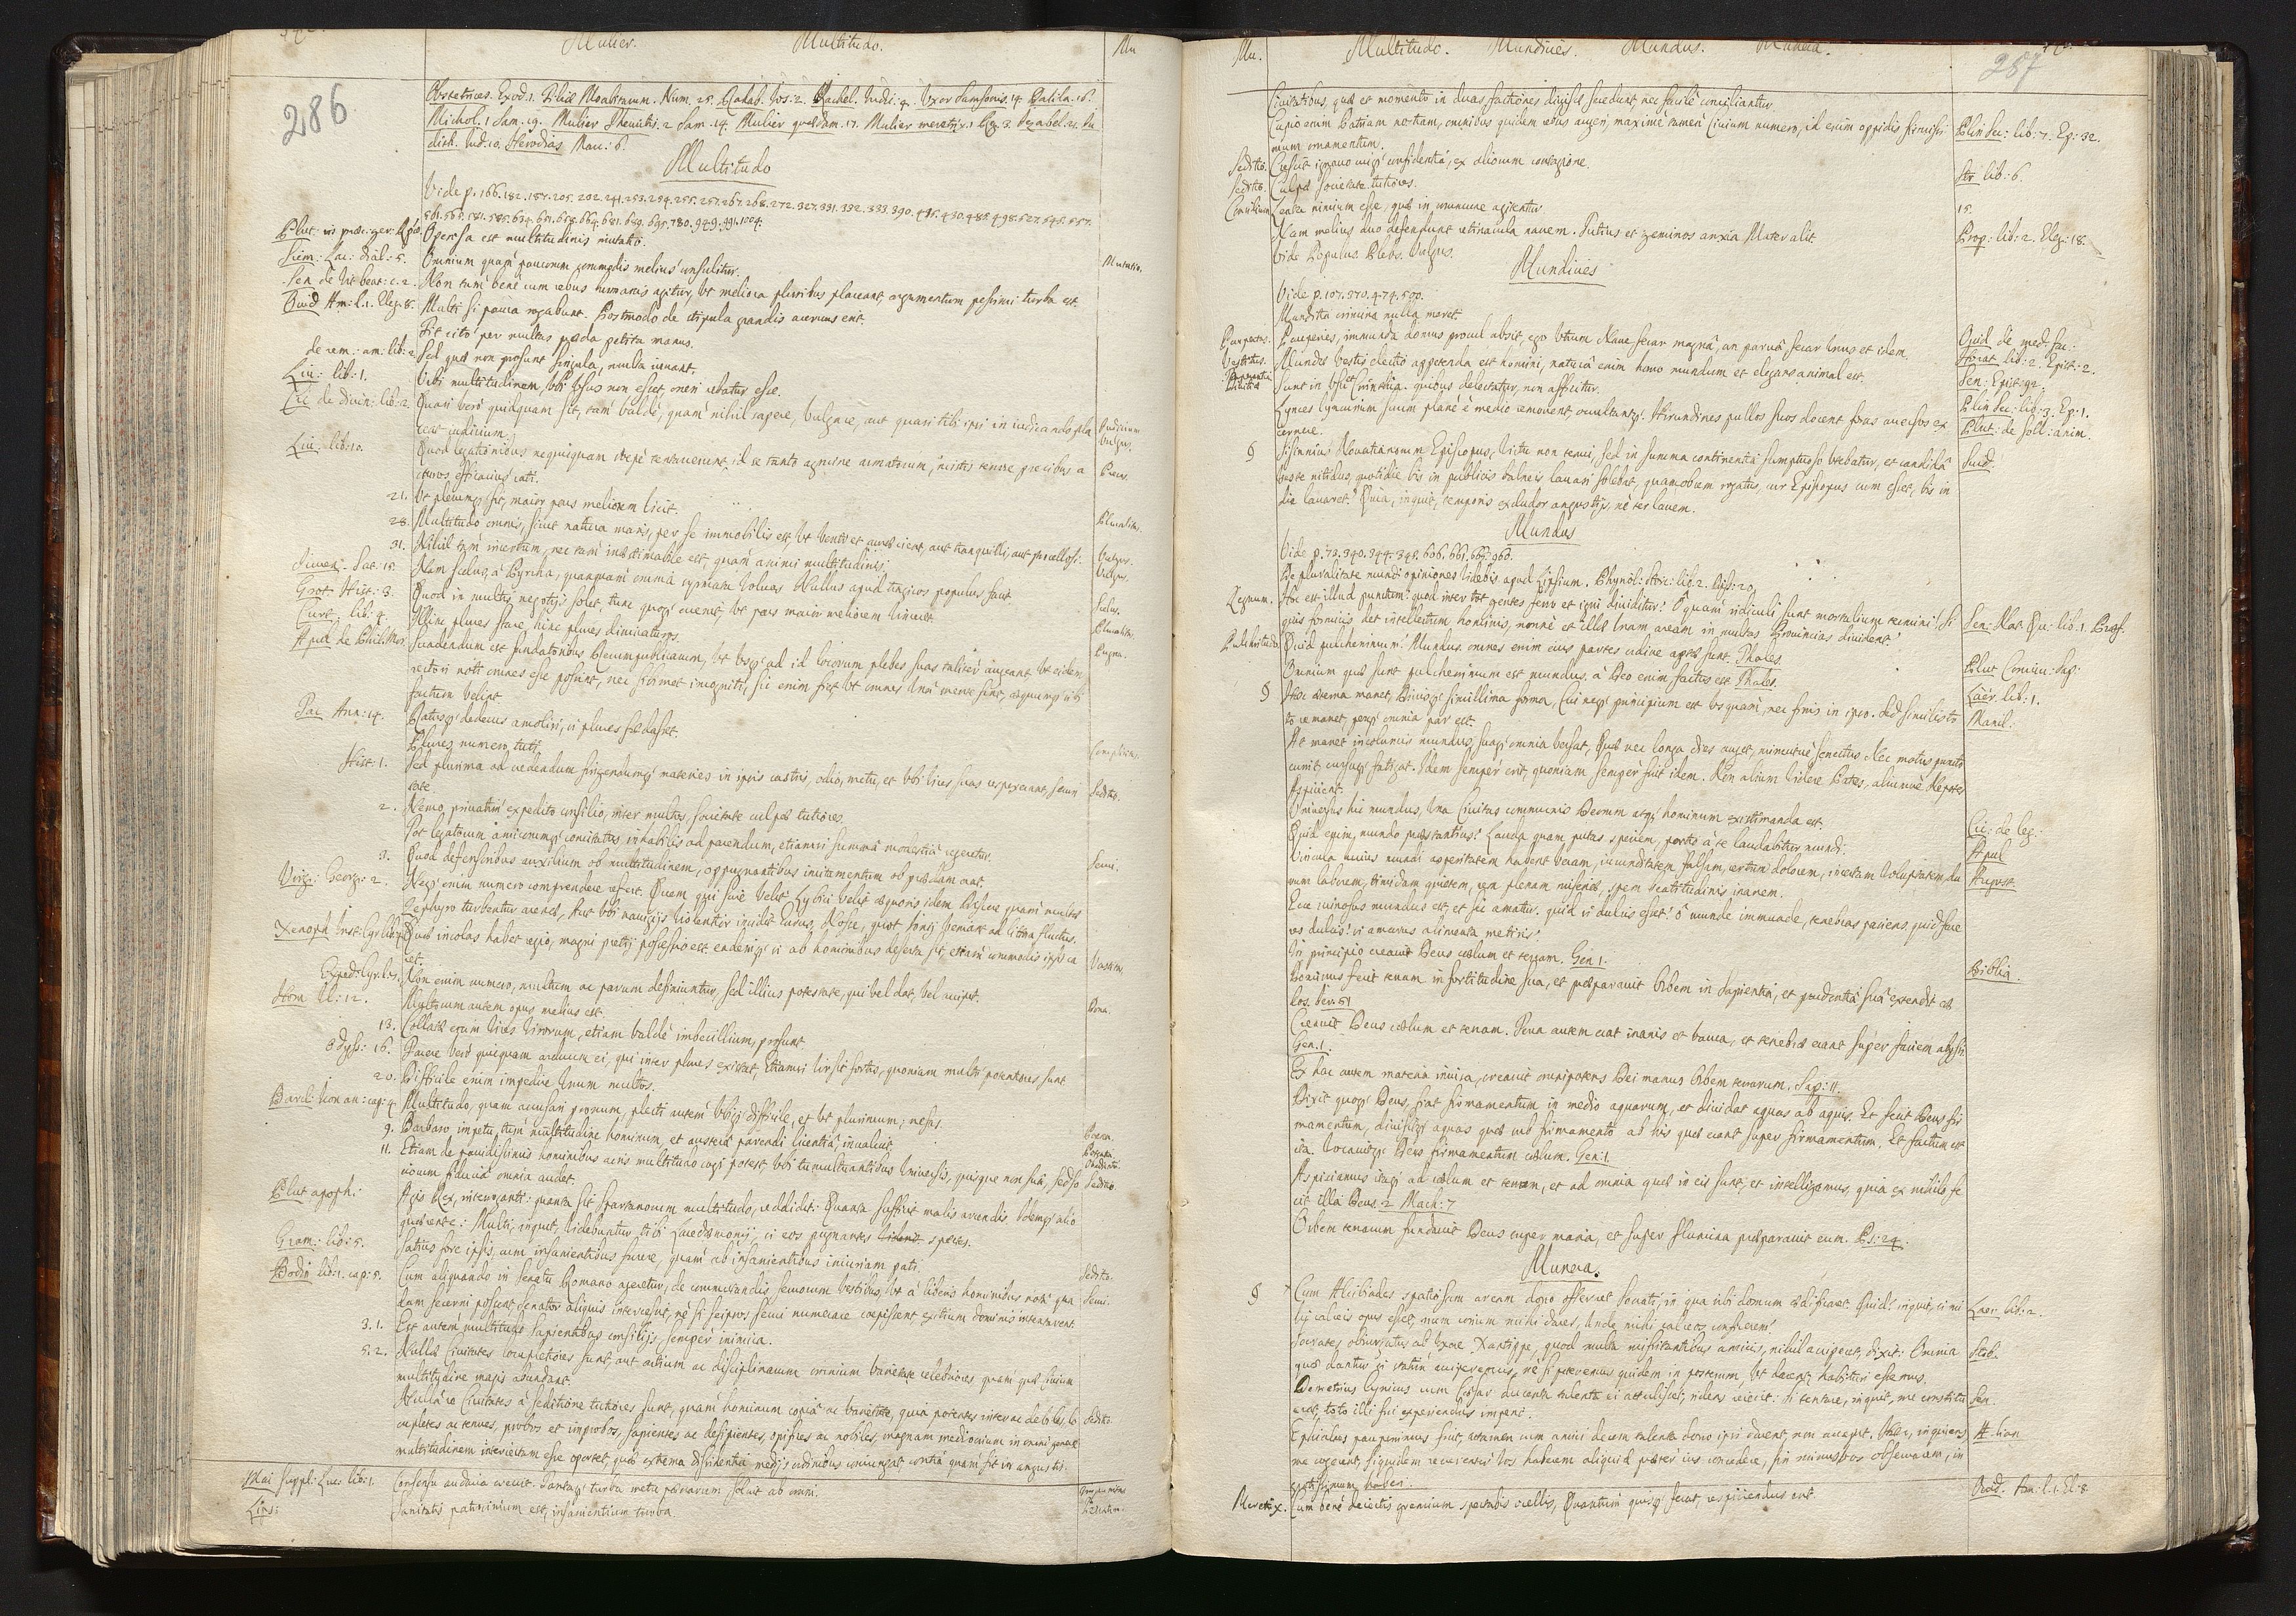 Mulier. Multitudo. Mu
286
Obstetrices. Exod. 1. Filiæ Moabitarum. Num. 25. Rahab. Jos: 2. Rachel. Judic: 4. Uxor Samsonis. 14. Dalila. 16.
Michol. 1 Sam. 19. Mulier Thecuitis. 2 Sam. 14. Mulier quædam. 17. Mulier meretrix. 1 Reg. 3. Jezabel. 21. Ju
dith. Jud. 10. Herodias Marc: 6.
Multitudo
Vide p. 166. 182. 187. 205. 232. 241. 253. 254. 255. 257. 267. 268. 272. 327. 331. 332. 333. 390.
Operosa est multitudinis mutatio. Mutatio.
Omnium quam paucorum commodis melius consulitur.
Sen. de Vit. beat: c. 2. Non tam bene cum rebus humanis agitur, ut meliora pluribus placeant, argumentum pessimi turba est.
Ovid. Am: l. 1. Eleg: 8. Multi si pauca rogabunt. Postmodo de stipula grandis acervus erit.
Fit cito per multas præda petita manus.
de rem: am: lib: 2. Sed quæ non prosunt singula, multa iuvant.
Liv: lib: 1. Ubi multitudinem, ubi usus non esset, oneri rebatur esse.
Cic. de divin: lib: 2. Quasi vero quidquam sit, tam valde, quam nihil sapere, vulgare, aut quasi tibi ipsi in iudicando pla Iudicium
ceat iudicium. Vulgus.
Liv: lib: 10. Quod legationibus nequiquam sæpe tentaverint, id se tanto agmine armatorum, mixtis terrore precibus a Preces.
cturos efficacius rati.
21. Ut plerumque fit, maior pars meliorem vicit. Pluralitas.
28. Multitudo omnis, sicut natura maris, per se immobilis est, ut venti et auræ cient, aut tranquilli, aut procellosi. Vulgus.
31. Nihil tam incertum, nec tam inæstimabile est, quam animi multitudinis. Vulgus.
Juven: Sat: 15. Nam scelus, a Pyrrha, quanquam omnia syrmata volvas Nullus apud tragicos populus facit. Scelus.
Grot. Hist: 3. Quod in multis negotijs solet, tunc quoque evenit, ut pars maior meliorem vinceret. Pluralitas.
Curt. lib: 4. Hinc plures stare, hinc plures dimicaturos. Pugna.
Apul. de Phil: Mor. Suadendum est fundatoribus Rerumpublicarum, ut usque ad id locorum plebes suas taliter augeant, ut eidem
rectori noti omnes esse possint, nec sibimet incogniti, sic enim fiet ut omnes una mente sint, æquumque sibi
factum velint.
Tac. Ann: 14. Ratusque dedecus amoliri, si plures fœdasset.
Plures numero tuti.
Hist: 1. Sed plurima ad credendum fingendumque materies in ipsis castris, odio, metu, et ubi vires suas respexerant, securi Seditio.
tate.
2. Nemo, privatim expedito consilio, inter multos, societate culpæ tutiores.
Tot legatorum amicorumque comitatus inhabilis ad parendum, etiamsi summa modestia regeretur.
3. Quod defensoribus auxilium ob multitudinem, oppugnantibus incitamentum ob prædam erat. Servi.
Virg: Georg: 2. Neque enim numero comprendere refert. Quem qui scire velit Lybici velit æquoris idem Discere quam multæ
Zephyro turbentur arenæ, Aut ubi navigijs violentior incidit Eurus, Nosse, quot Ionij veniant ad littora fluctus.
Xenoph. Inst: Cyr: lib: 4. Quæ incolas habet regio, magni pretij possessio est, eademque si ab hominibus deserta sit, etiam commodis ipsis ca
ret.
Exped: Cyr: lib: Non enim numero, multum ac parum definiuntur, sed illius potestate, qui vel dat, vel accipit.
Hom. Il: 12. Multorum autem opus melius est. Bona.
13. Collatæ enim vires virorum, etiam valde imbecillium, prosunt.
Odyss: 16. Facere vero quicquam arduum ei, qui inter plures existat, etiamsi vir sit fortis, quoniam multi potentiores sunt
20. Difficile enim impedire unum multos.
Barcl: Icon an: cap: 4. Multitudo, quam accusari pronum, plecti autem ubique difficile, et ut plurimum; nefas.
9. Barbaro impetu, tum multitudine hominum, et austera parendi licentia, invaluit.
11. Etiam de pavidissimis hominibus acris multitudo cogi potest, ubi tumultuantibus universis, quisque non sua, sed so Seditio.
ciorum fiducia omnia audet.
Plut. apoph: Agis Rex, interroganti: quanta sit Spartanorum multitudo, reddidit: Quanta sufficit malis arcendis. Idemque alio
quærente: Multi, inquit, videbuntur tibi Lacedæmonij, si eos pugnantes spectes.
Gram: lib: 5. Satius fore ipsis, cum insanientibus furere, quam ab insanientibus iniuriam pati. Seditio.
Bodin. lib: 1. cap: 5. Cum aliquando in Senatu Romano ageretur, de commutandis servorum vestibus, ut a liberis hominibus nota qua Servi.
dam secerni possent, Senator aliquis intercessit, ne si seipsos servi numerare cœpissent exitium dominis intentarent.
3. 1. Est autem multitudo sapientibus consilijs, semper inimica.
5. 2. Nullæ Civitates locupletiores sunt, aut artium ac disciplinarum omnium varietate celebriores quam quæ civium
multitudine magis abundant.
Nullæ Civitates a seditione tutiores sunt, quam hominum copia ac varietate, quia potentes inter ac debiles, lo Seditio.
cupletes ac tenues, probos et improbos, sapientes ac desipientes, opifices ac nobiles, magnam mediocrium in omni genere
multitudinem interiectam esse oportet, quæ extrema dissidentia medijs ordinibus coniungat, contra quam fit in angustis.
Mai. suppl: Luc: lib: 1. Consensu audacia crevit. Tantaque turba metu pœnarum solvit ab omni.
Lips: Sanitatis patrocinium est, insanientium turba.
Mu. Multitudo. Mundities. Mundus. Munera.
287
Civitatibus, quæ et momento in duas, factiones divisæ, secedunt, nec facile conciliantur.
Cupio enim Patriam nostram, omnibus quidem rebus augeri, maxime tamen Civium numero, id enim oppidis firmissi Plin Sec: lib: 7. Ep: 32.
mum ornamentum.
Seditio. Crescit ignavo cuique confidentia, ex aliorum contagione. Str lib: 6.
Seditio. Culpæ societate tutiores.
Consilium Lenta nimium esse, quæ in commune agitentur 15.
Nam melius duo defendunt retinacula navem. Tutius et geminos anxia Mater alit. Prop: lib: 2. Eleg: 18.
Vide Populus. Plebs. Vulgus.
Mundities
Vide p. 107. 370. 474. 500.
Munditia crimina nulla meret. Ovid. de med: fac:
Paupertas. Pauperies, immunda domus procul absit, ego utrum Nave ferar magna, an parva ferar unus et idem. Horat. lib: 2. Epist: 2.
Vestitus. Mundæ vestis electio appetenda est homini, natura enim homo mundum et elegans animal est. Sen: Epist: 92.
Sunt in usu Corinthia. quibus delectatur, non afficitur. Plin Sec: lib: 3. Ep: 1.
Lynces lyncurium suum plane e medio removent, occultantque. Hirundines pullos suos docent foras aversos ex Plut: de Soll: anim.
cernere.
§ Sisinnius Novatianorum Episcopus, victu non tenui, sed in summa continentia sumptuoso utebatur, et candida Suid.
veste nitidus, quotidie bis in publicis balneis lavari solebat, quamobrem rogatus, cur Episcopus cum esset, bis in
die lavaret? Quia, inquit, temporis excludor angustijs, ne ter lavem.
Mundus
Vide p. 73. 340. 344. 348. 606. 661. 665. 960.
De pluralitate mundi opiniones videbis apud Lipsium. Physiol: Stoic: lib. 2. Diss: 20.
Regnum. Hoc est illud punctum? quod inter tot gentes ferro et igni dividitur? O quam ridiculi sunt mortalium termini! Si Sen: Nat: Qu: lib. 1. Præf.
quis formicis det intellectum hominis, nonne et illæ unam aream in multas Provincias divident?
Pulchritudo. Quid pulcherrimum? Mundus. omnes enim eius partes ordine aptæ sunt. Thales. Plut. Conviv: Sap:
Omnium quæ sunt pulcherrimum est mundus. a Deo enim factus est. Thales. Laër. lib: 1.
§ Hæc æterna manet, Divisque simillima forma, Cui neque principium est usquam, nec finis in ipso. Sed similis to Manil:
to remanet, perque omnia par est.
At manet incolumis mundus, suaque omnia versat, Quæ nec longa dies auget, minuitve senectus Nec motus puncto
currit, cursusque fatigat. Idem semper erit, quoniam semper fuit idem. Non alium videre Patres, aliumve Nepotes
Aspicient.
Universus hic mundus, una Civitas communis Deorum atque hominum existimanda est. Cic: de leg:
Quid enim, mundo præstantius? Lauda quam putas speciem, portio a te laudabitur mundi. Apul
Vincula huius mundi asperitatem habent veram, iucunditatem falsam, certum dolorem, incertam voluptatem, du August.
rum laborem, timidam quietem, rem plenam miseriæ, spem beatitudinis inanem.
Ecce ruinosus mundus est, et sic amatur. quid si dulcis esset? ô munde immunde, tenebras faciens, quid face
res dulcis? si amarus alimenta mentiris?
In principio creavit Deus cœlum et terram. Gen 1. Biblia.
Dominus fecit terram in fortitudine sua, et præparavit orbem in Sapientia, et prudentia sua extendit cœ
los. Jer: 51
Creavit Deus cœlum et terram. Terra autem erat inanis et vacua, et tenebræ erant super faciem abyssi
Gen. 1.
Ex hac autem materia invisa, creavit omnipotens Dei manus Orbem terrarum. Sap: 11.
Dixit quoque Deus, fiat firmamentum in medio aquarum, et dividat aquas ab aquis. Et fecit Deus fir
mamentum, divisitque aquas quæ sub firmamento ab his quæ erant super firmamentum. Et factum est
ita. Vocavitque Deus firmamentum cœlum. Gen: 1.
Aspiciamus itaque ad cœlum et terram, et ad omnia quæ in eis sunt, et intelligamus, quia ex nihilo fe
cit illa Deus. 2 Mach: 7
Orbem terrarum fundavit Deus super maria, et super flumina præparavit eum. Ps: 24.
Munera.
§ Cum Alcibiades spatiosam aream dono offerret Socrati, in qua sibi domum ædificaret. Quid? inquit, si mi Laer. lib: 2.
hi calceis opus esset, num corium mihi dares, unde mihi calceos conficerem?
Socrates obiurgatus ab uxore Xantippe, quod multa missitantibus amicis, nihil acciperet, dixit: Omnia Stob.
quæ dantur si statim acciperemus, ne si peteremus quidem in posterum, ut darent, habituri essemus.
Demetrius Cynicus cum Cæsar ducenta talenta ei attulisset, ridens reiecit: Si tentare, inquit, me constitu Sen.
erat, toto illi fui experiendus imperio.
Ephialtes pauperrimus fuit, attamen cum amici decem talenta dono ipsi darent, non accepit. Hæc, inquiens Ælian
me cogerent, siquidem reverenter vos haberem aliquid præter ius concedere, sin minus vos observarem, in
gratissimum haberi.
Meretrix. Cum bene deiectis gremium spectabis ocellis, Quantum quisque ferat, respiciendus erit. Ovid. Am: l. 1. El: 8.